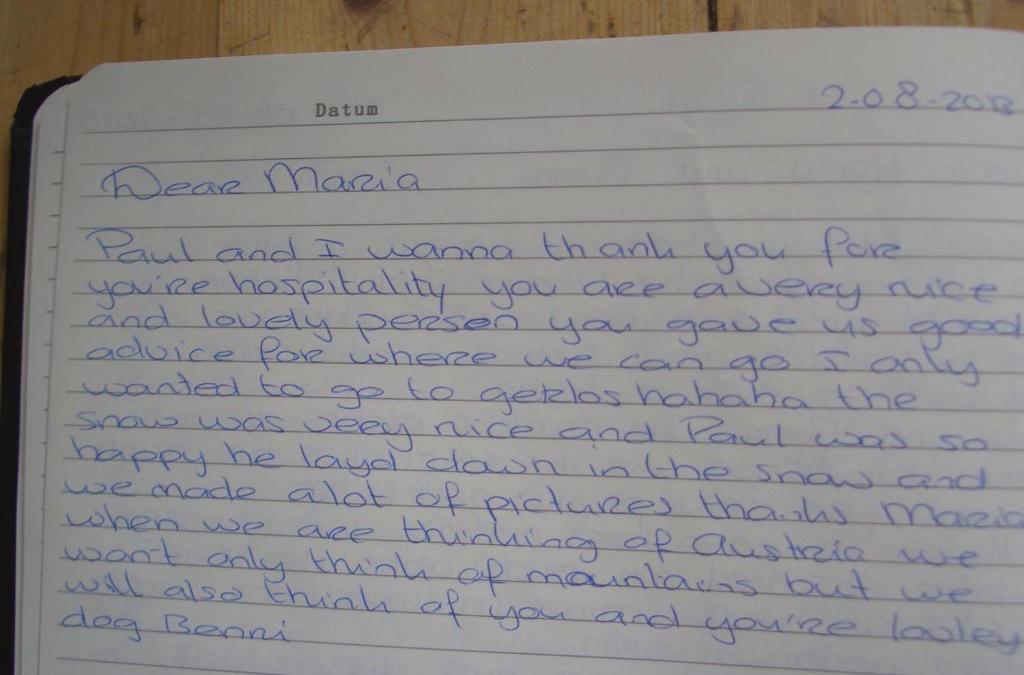 Datum
2.08.2013
Dear Maria
Paul and I wanna thank you for
you're hospitality you are a very nice
and lovely person you gave us good
advice for where we can go I only
wanted to go to gerlos hahaha the
snow was very nice and Paul was so
happy he layd down in the snow and
we made alot of pictures thanks Maria
when we are thinking of Austria we
won't only think of mountains but we
will also think of you and you're lovley
dog Benni